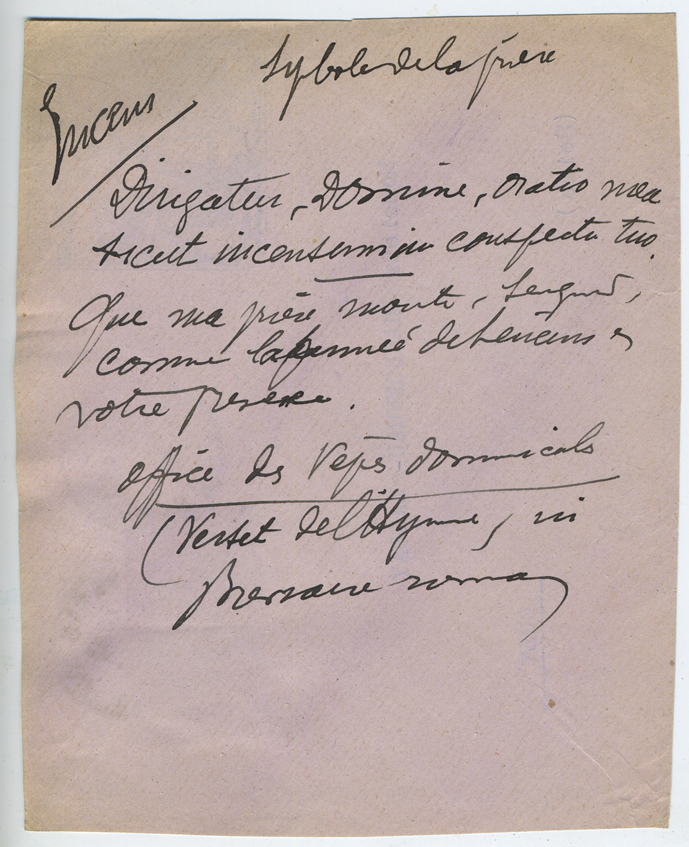 Symbole de la prière
Encens
Dirigatur, Domine, oratio mea
sicut incensum in conspectu tuo.
Que ma prière monte, Seigneur,
comme la fumée de l'encens en
votre presence.
Office des Vêpres dominicales
(Verset de l'Hymne, in
Breviaire romain)